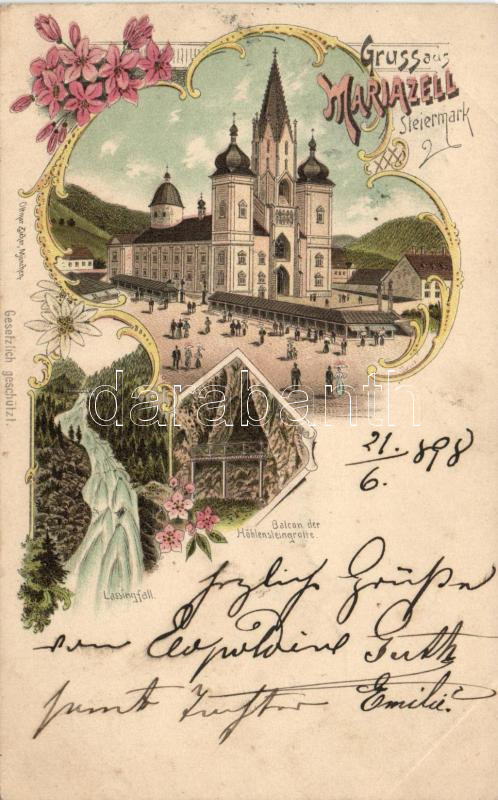 Gruss aus
MARIAZELL
Steiermark
Ottmar Zieher, München.
Gesetzlich geschützt.
darabanth
Balcon der
Höhlensteingrotte.
Lassingfall.
21./6. 898
herzliche Grüße
von Leopoldine
samt Emilie